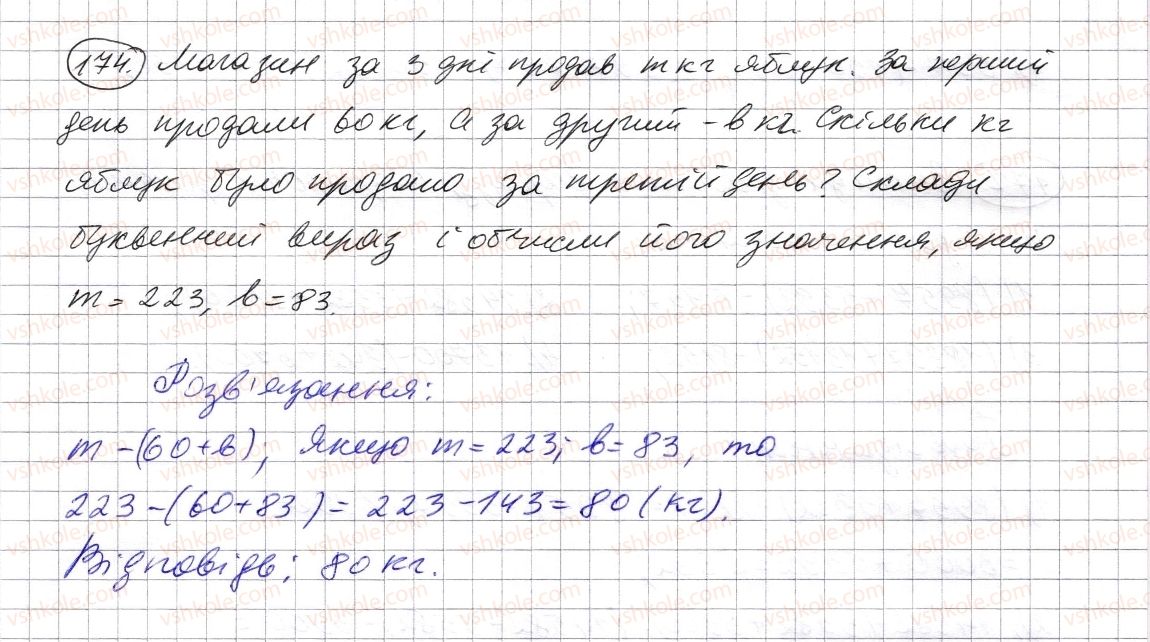 174. Магазин за 3 дні продав m кг яблук. За перший
день продали 60 кг, а за другий - в кг. Скільки кг
яблук було продано за третій день? Склади
буквенний вираз і обчисли його значення, якщо
m = 223, в = 83.
Розв'язання:
m - (60 + в), якщо m = 223; в = 83, то
223 - (60 + 83) = 223 - 143 = 80 (кг).
Відповідь: 80 кг.